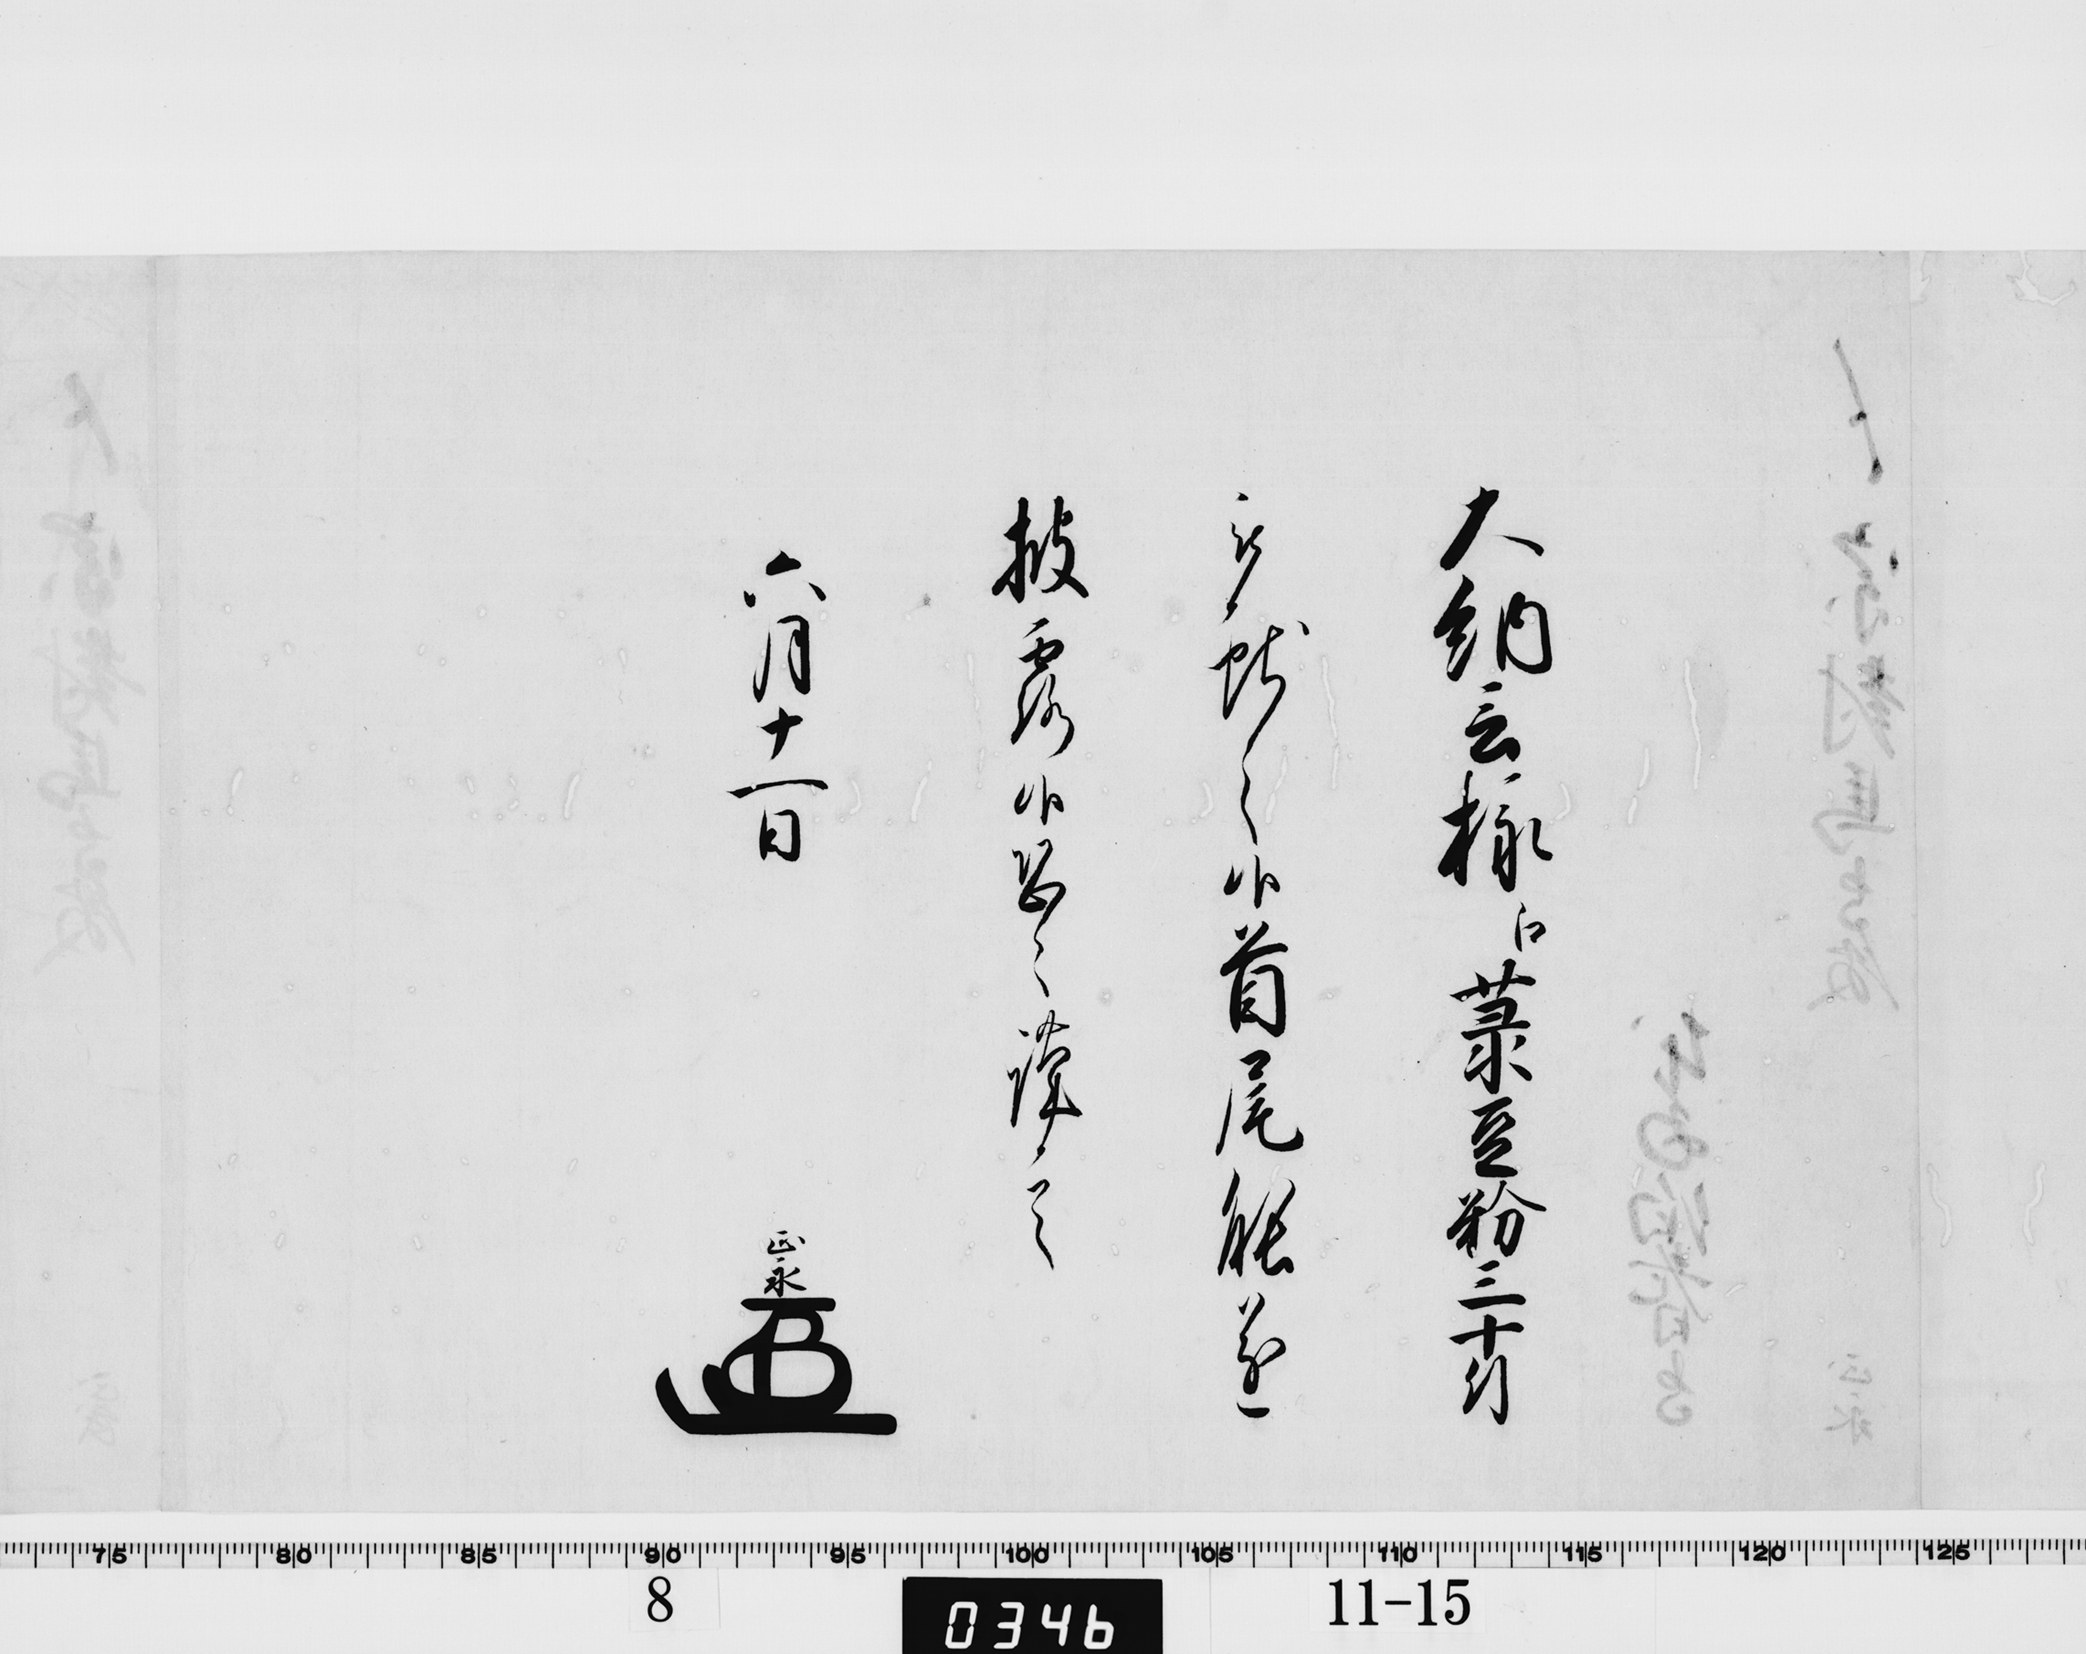 大納言様江菉豆粉三十斤
被献之候首尾能遂
披露候恐々謹言
六月十一日
正永
75 80 85 90 95 100 105 110 115 120 125
8 0346 11-15